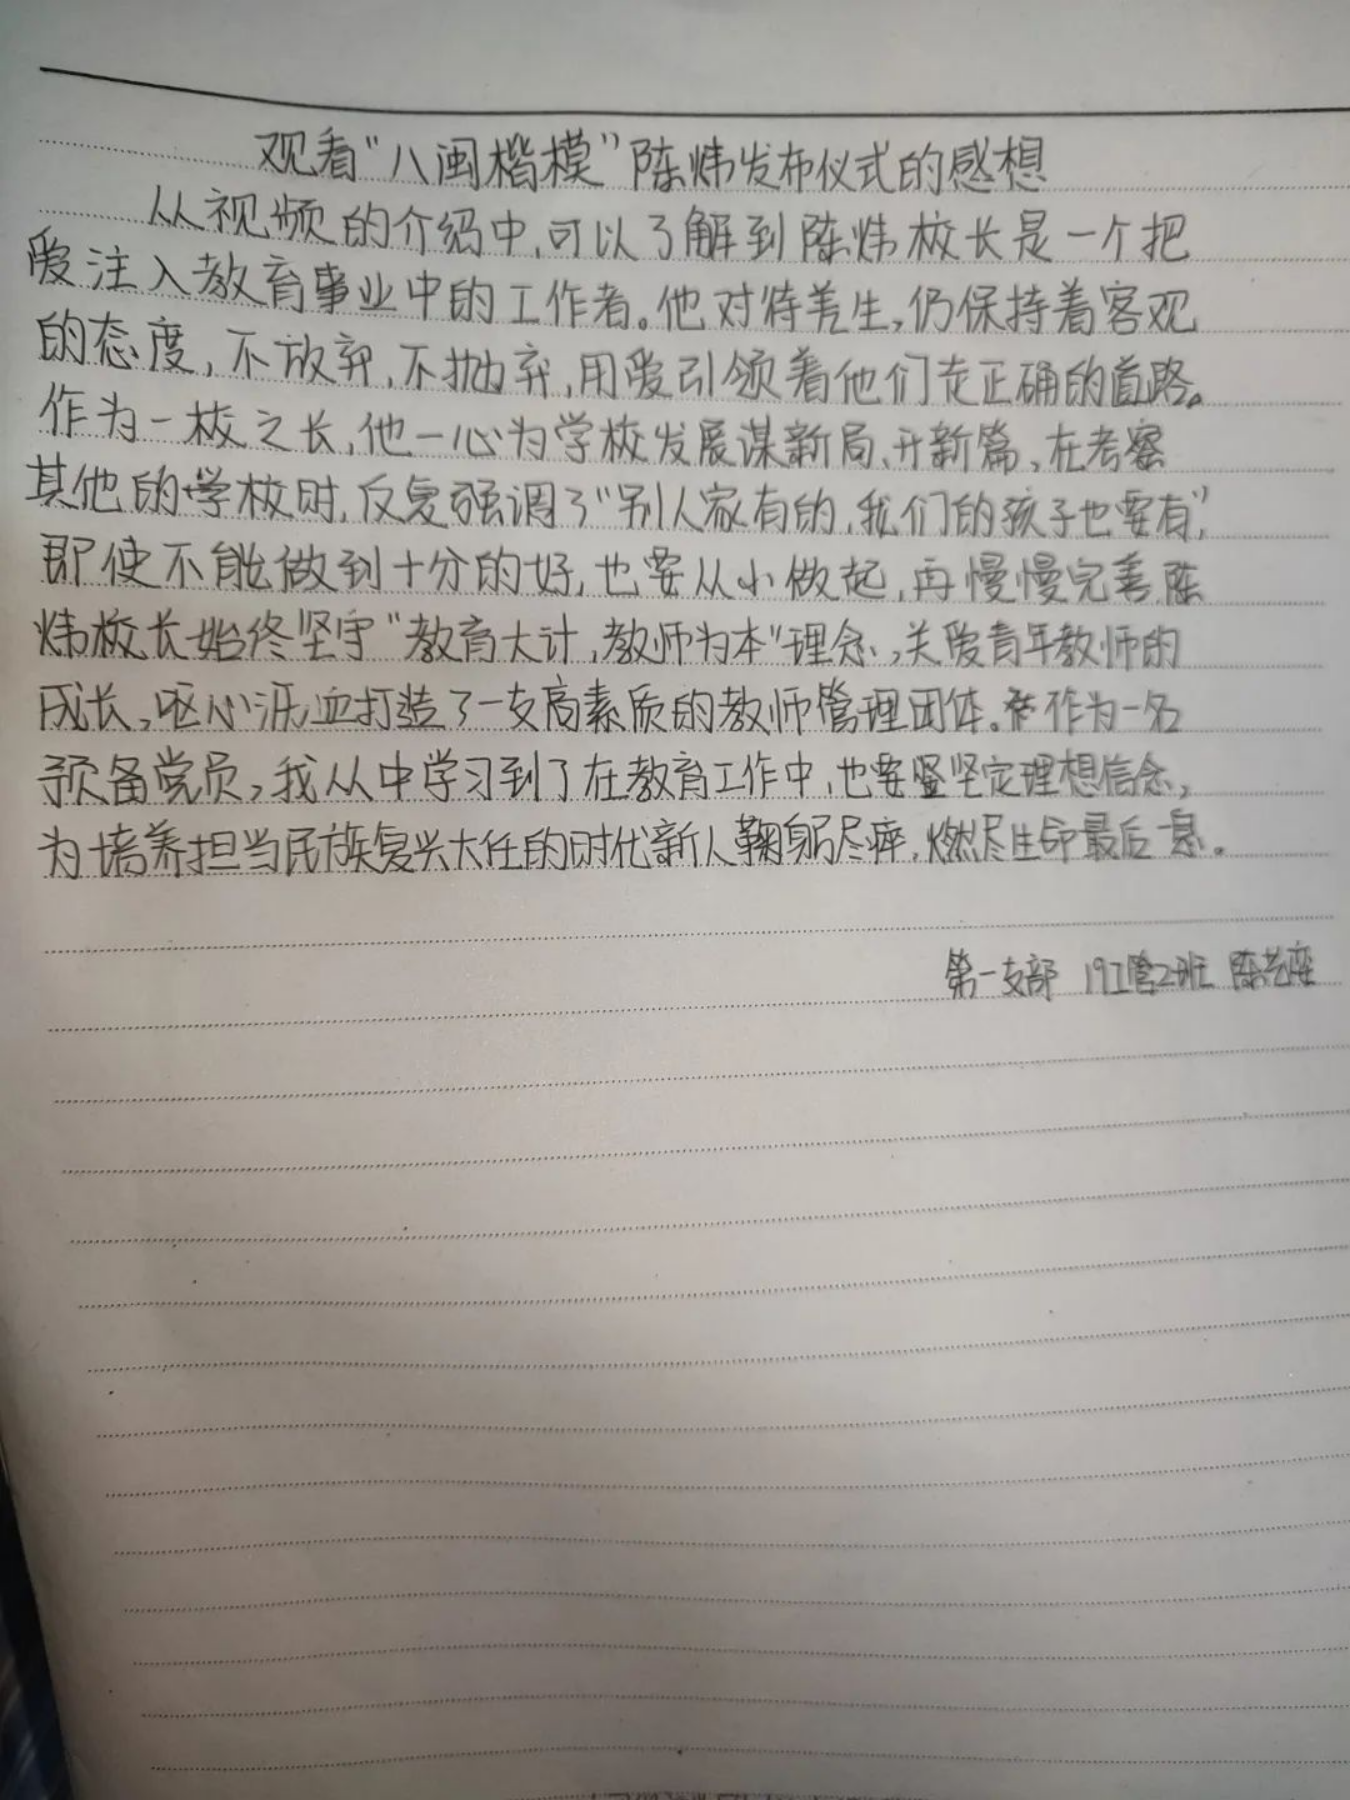 观看“八闽楷模”陈炜发布仪式的感想
从视频的介绍中,可以了解到陈炜校长是一个把
爱注入教育事业中的工作者。他对待差生,仍保持着客观
的态度,不放弃,不抛弃,用爱引领着他们走正确的道路。
作为一校之长,他一心为学校发展谋新局、开新篇,在考察
其他的学校时,反复强调了“别人家有的,我们的孩子也要有”,
即使不能做到十分的好,也要从小做起,再慢慢完善.陈
炜校长始终坚守“教育大计,教师为本”理念,关爱青年教师的
成长,呕心沥血打造了一支高素质的教师管理团体。作为一名
预备党员,我从中学习到了在教育工作中,也要坚定理想信念,
为培养担当民族复兴大任的时代新人鞠躬尽瘁,燃尽生命最后一息。
第一支部 19工管2班 陈艺